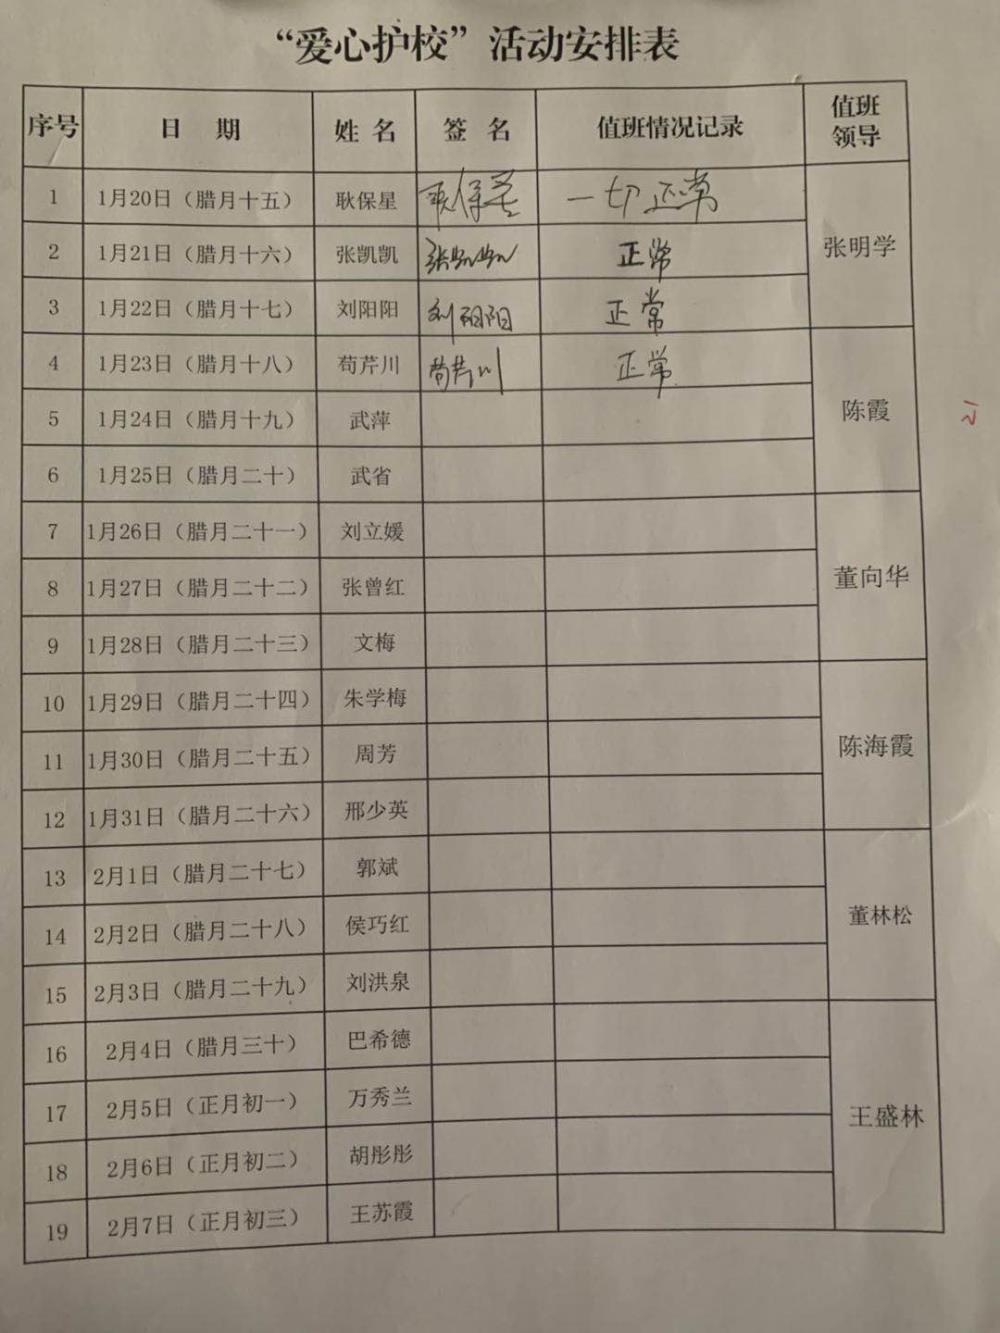 “爱心护校”活动安排表
序号 日 期 姓 名 签 名 值班情况记录 值班领导
1 1月20日（腊月十五） 耿保星 耿保星 一切正常 张明学
2 1月21日（腊月十六） 张凯凯 张凯凯 正常
3 1月22日（腊月十七） 刘阳阳 刘阳阳 正常
4 1月23日（腊月十八） 苟芹川 苟芹川 正常 陈霞
5 1月24日（腊月十九） 武萍
6 1月25日（腊月二十） 武省
7 1月26日（腊月二十一） 刘立媛 董向华
8 1月27日（腊月二十二） 张曾红
9 1月28日（腊月二十三） 文梅
10 1月29日（腊月二十四） 朱学梅 陈海霞
11 1月30日（腊月二十五） 周芳
12 1月31日（腊月二十六） 邢少英
13 2月1日（腊月二十七） 郭斌 董林松
14 2月2日（腊月二十八） 侯巧红
15 2月3日（腊月二十九） 刘洪泉
16 2月4日（腊月三十） 巴希德 王盛林
17 2月5日（正月初一） 万秀兰
18 2月6日（正月初二） 胡彤彤
19 2月7日（正月初三） 王苏霞